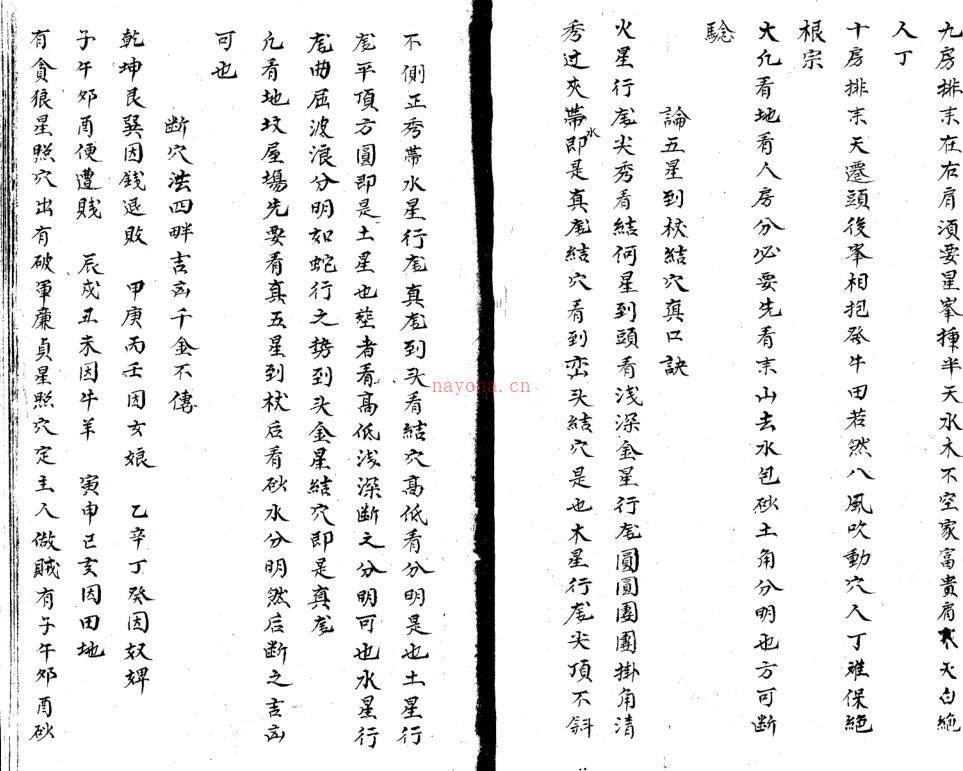 九房排来在右肩须要星峯揷半天水木不空家富贵肩天白絶
人丁
十房排来天遷頭後峯相抱發牛田若然八風吹動穴人丁难保絶
根宗
大凢看地看人房分必要先看来山去水包砂土角分明也方可断
驗
論五星到校結穴真口訣
火星行龙尖秀看結何星到頭看浅深金星行龙圓圓團團掛角清
秀过夾帶水即是真龙結穴看到峦头結穴是也木星行龙尖頂不斜
不侧正秀帶水星行龙真龙到头看結穴高低看分明是也土星行
龙平頂方圓即是土星也塟者看高低浅深断之分明可也水星行
龙曲屈波浪分明如蛇行之势到头金星結穴即是真龙
凢看地坟屋塲先要看真五星到杖后看砂水分明然后断之吉凶
可也
断穴法四畔吉凶千金不傳
乾坤艮巽因錢退敗 甲庚丙壬因女娘 乙辛丁癸因奴婢
子午卯酉便遭賤 辰戍丑未因牛羊 寅申巳亥因田地
有貪狼星照穴出有破軍廉貞星照穴定主人做賊有子午卯酉砂
nayona.cn